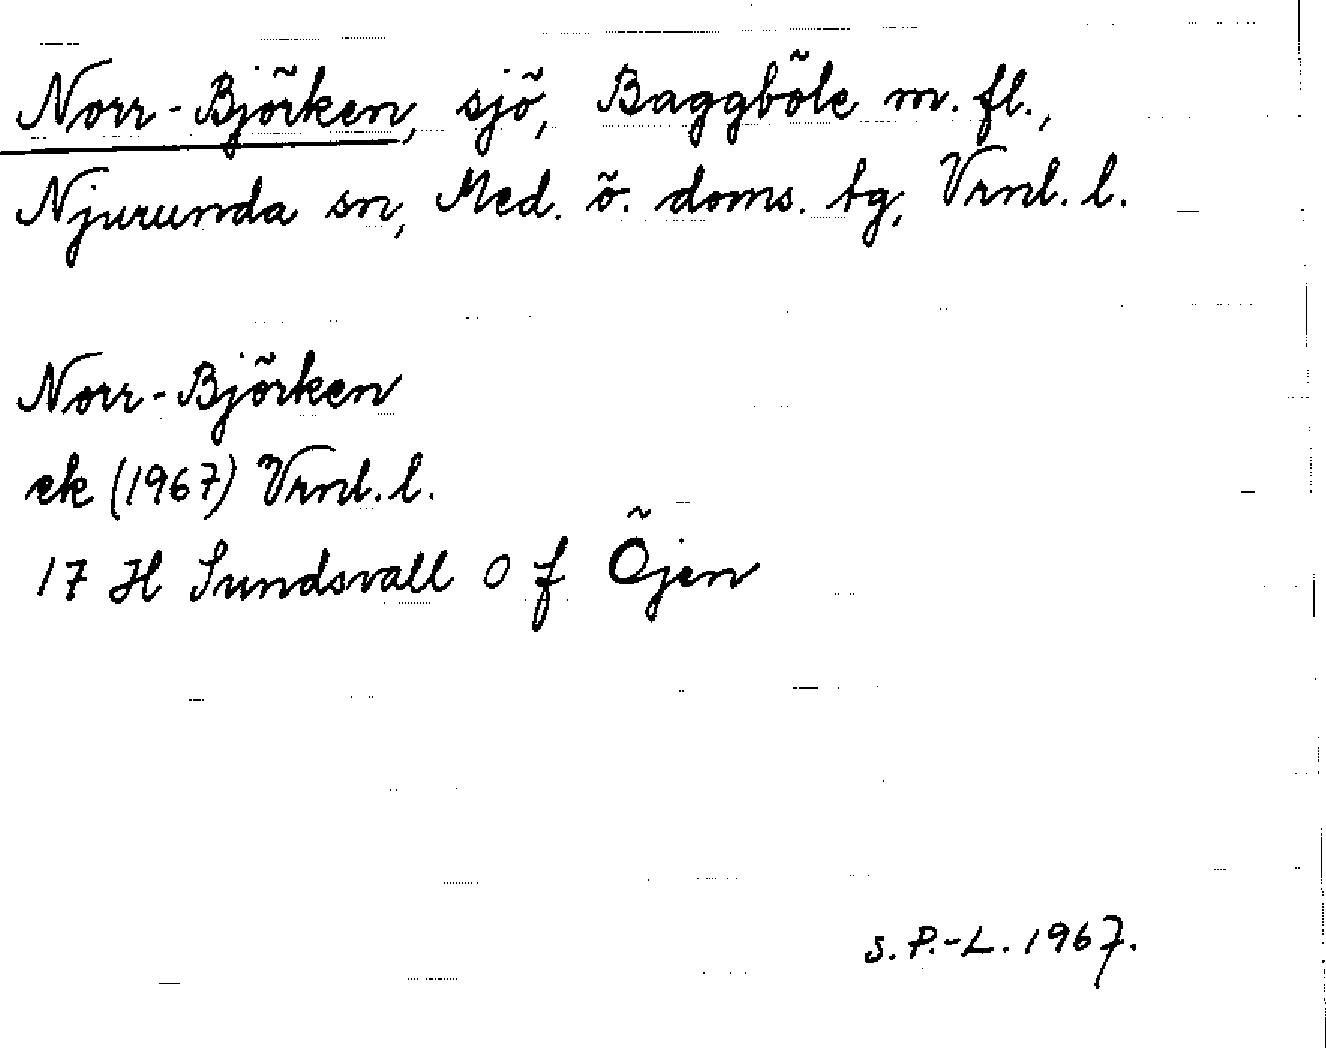 Norr-Björken, sjö, Baggböle m. fl.,
Njurunda sn, Med. ö. doms. tg, Vrnl. l.
Norr-Björken
ek (1967) Vrnl. l.
17 H Sundsvall 0 f Öjen
S. P.-L. 1967.